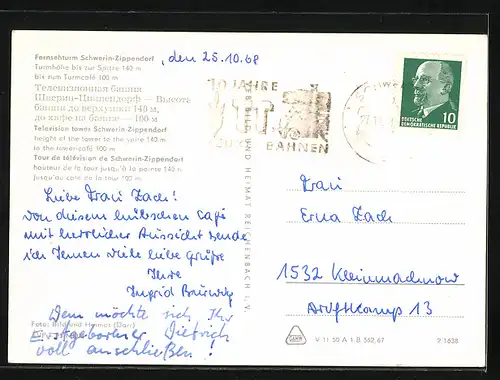 Fernsehturm Schwerin-Zippendorf
Turmhöhe bis zur Spitze 140 m
bis zum Turmcafé 100 m
Телевизионная башня
Шверин-Циппендорф — Высота
башни до верхушки 140 м,
до кафе на башне — 100 м
Television tower Schwerin-Zippendorf
height of the tower to the spire 140 m
to the tower-café 100 m
Tour de télévision de Schwerin-Zippendorf
hauteur de la tour jusqu'à la pointe 140 m
jusqu'au café de la tour 100 m
, den 25.10.68
Liebe Frau Zach!
Von diesem hübschen Café
mit herrlicher Aussicht sende
ich Ihnen viele liebe Grüße
Ihre
Ingrid
Dem möchte sich Ihr
Erstgeborener Dietrich
voll anschließen!
Foto: Bild und Heimat (Darr)
BILD UND HEIMAT REICHENBACH I. V.
10 JAHRE
BAHNEN
10
DEUTSCHE
DEMOKRATISCHE REPUBLIK
Frau
Erna Zach
1532 Kleinmachnow
13
V 11 50 A 1 B 562/67
2 1638